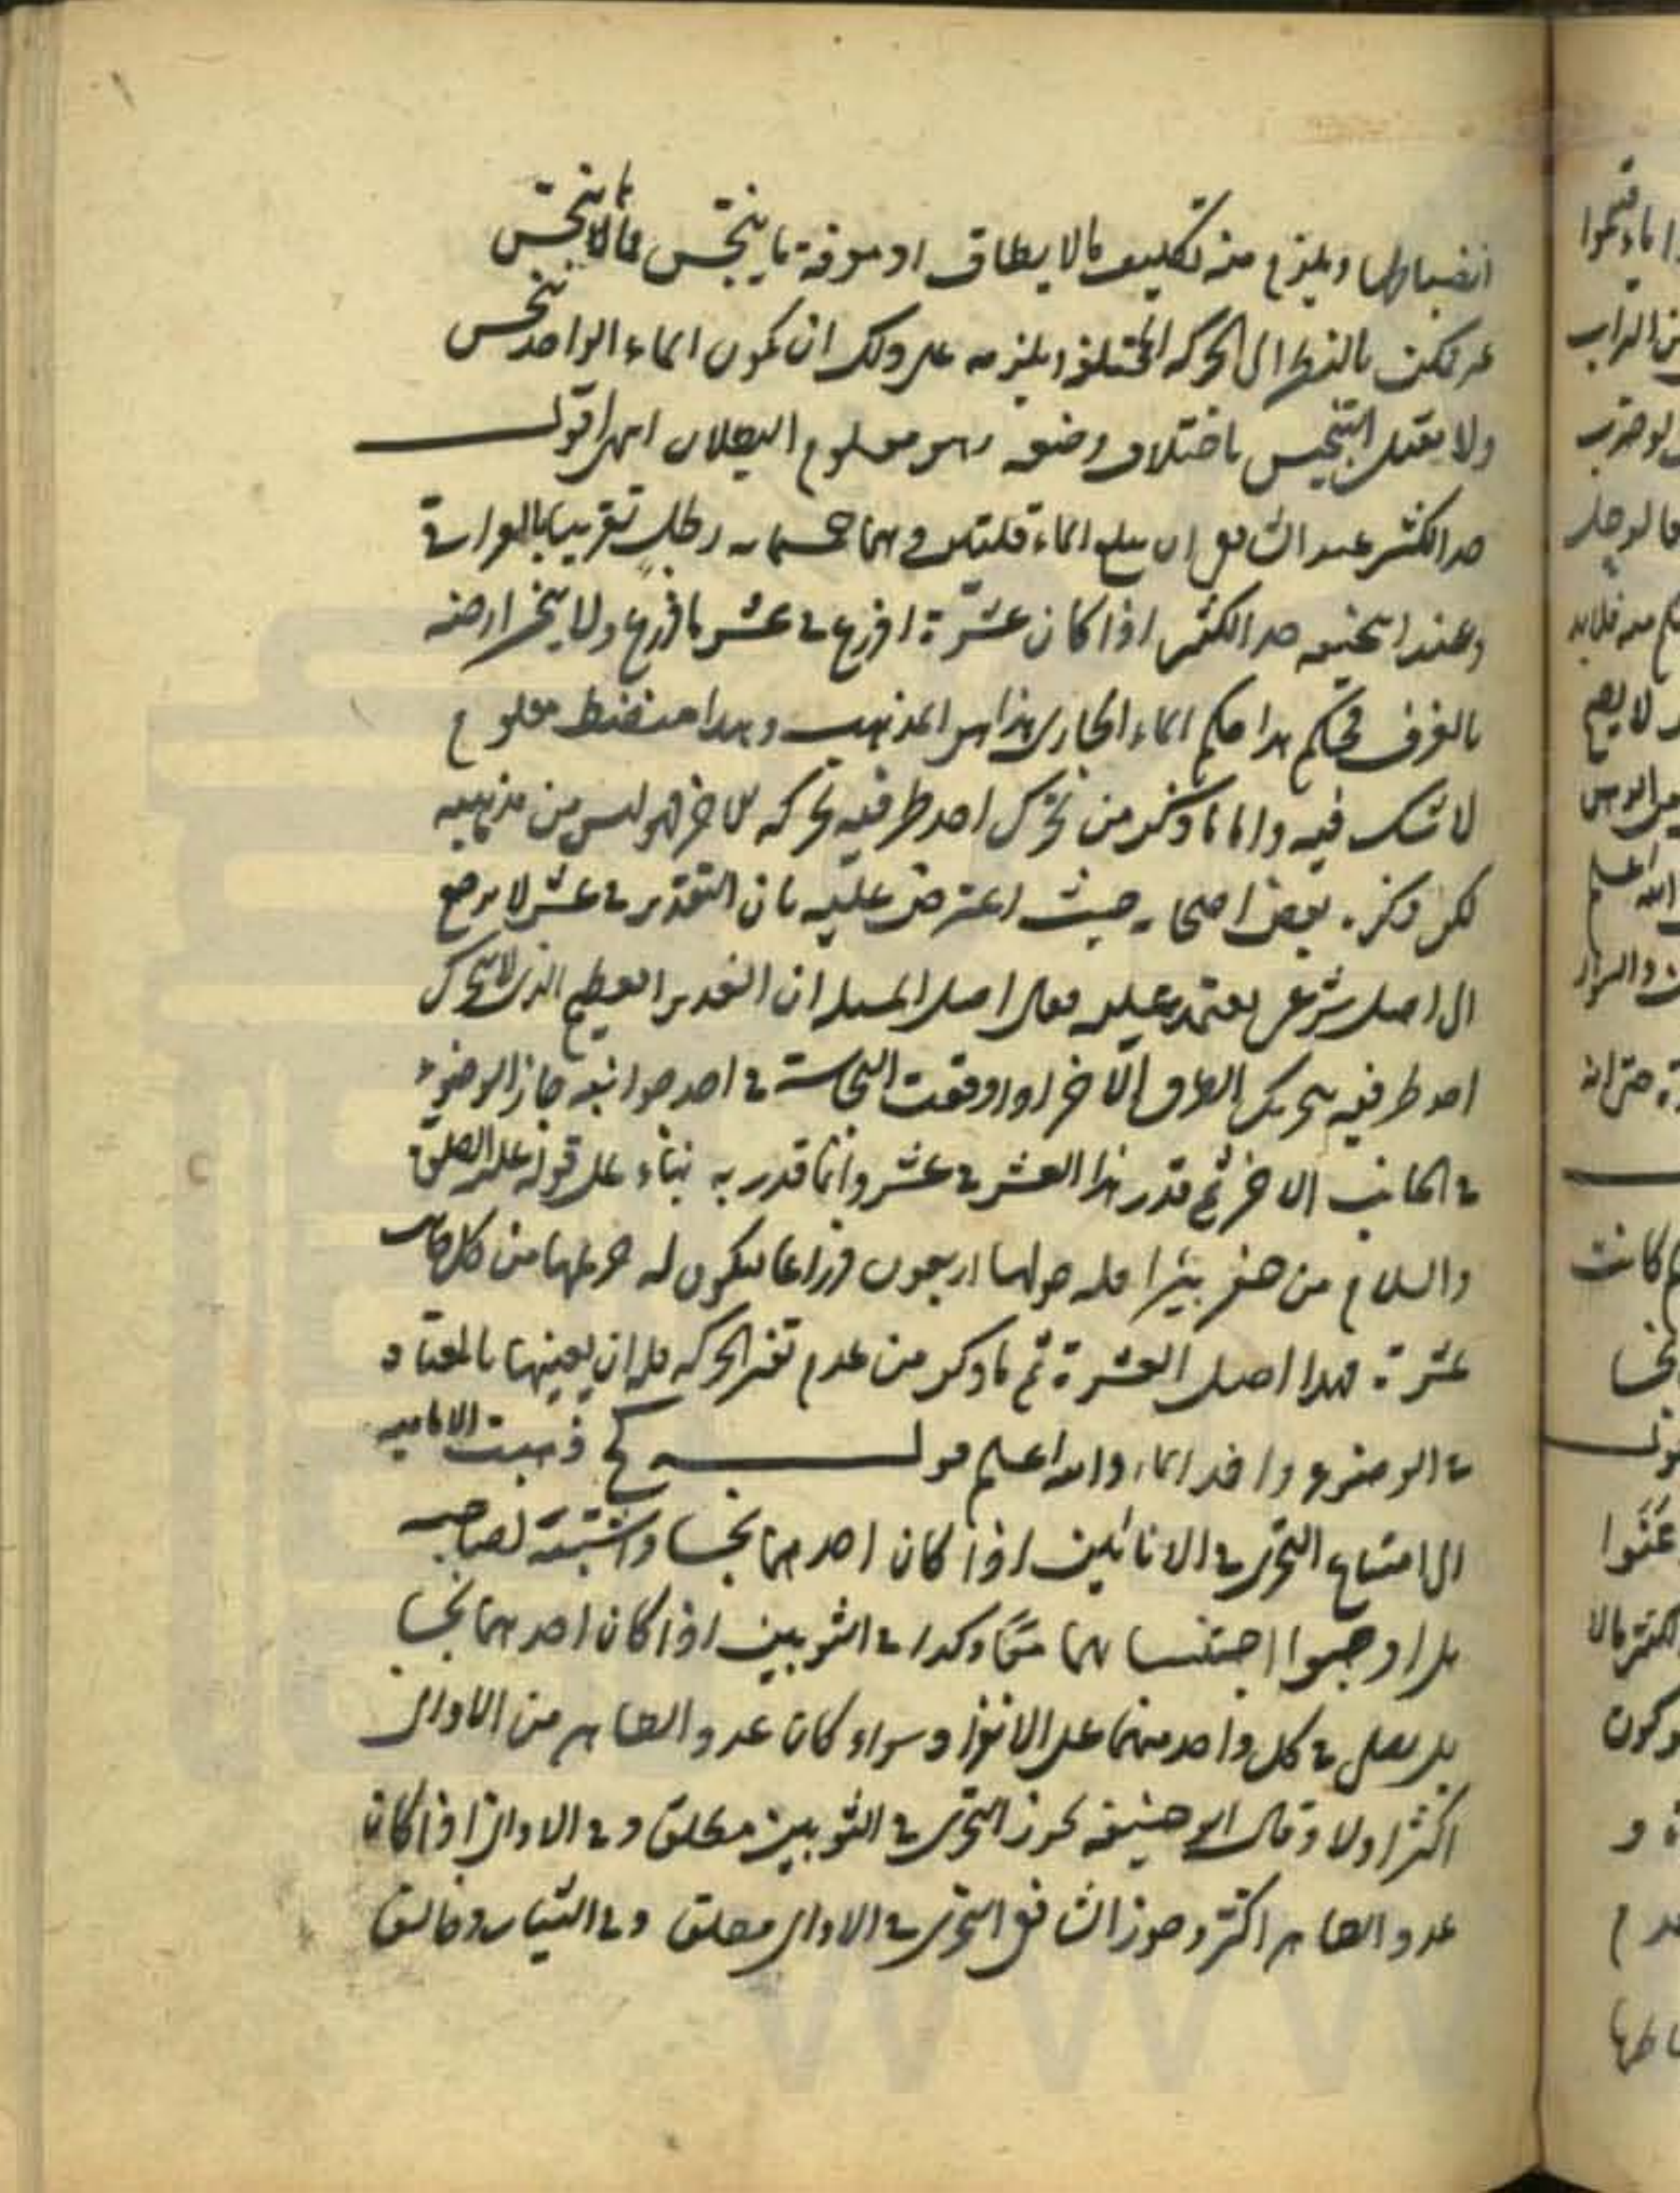 انضباطها ويلزم منه تكليف ما لا يطاق اذ معرفة ما ينجس مما لا ينجس
غير ممكن بالنظر الى الحركة المختلفة ويلزمه على ذلك ان يكون الماء الواحد ينجس
ولا يقبل التنجيس باختلاف وضعه وهو معلوم البطلان انتهى اقول
حد الكثير عند الشافعي ان يبلغ الماء قلتين وهما خمسمايه رطل تقريبا بالعراقي
وعند ابي حنيفه حد الكثير اذا كان عشرة اذرع في عشر باذرع ولا ينحسر ارضه
بالغرف فحكم هذا حكم الماء الجاري هذا هو المذهب وهذا منضبط معلوم
لا شك فيه واما ما ذكر من تحرك احد طرفيه بحركه الاخر فهو ليس من مذهبه
لكن ذكره بعض اصحابه حيث اعترض عليه بان التقدير في عشر لا يرجع
الى اصل شرعي يعتمد عليه فقال اصل المسئله ان الغدير العظيم الذي لا يتحرك
احد طرفيه بتحريك الطرف الاخر اذا وقعت النجاسة في احد جوانبه جاز الوضوء
في الجانب الاخر ثم قدر هذا العشر في عشر وانما قدر به بناء على قوله عليه الصلوة
والسلام من حفر بئرا فله حولها اربعون ذراعا فيكون له حريمها من كل جانب
عشرة فهذا اصل العشرة ثم ما ذكر من عدم الحركه فله ان يعينها بالمعتاد
في الوضوء واخذ الماء والله اعلم قوله كح ذهبت الاماميه
الى امتناع التحري في الانائين اذا كان احدهما نجسا واشتبه بصاحبه
بل اوجبوا اجتنابهما معا وكذا في الثوبين اذا كان احدهما نجسا
بل يصلي في كل واحد منهما على الانفراد وسواء كان عدد الطاهر من الاواني
اكثر او لا وقال ابو حنيفة يجوز التحري في الثوبين مطلقا وفي الاواني اذا كان
عدد الطاهر اكثر وجوز الشافعي التحري في الاواني مطلقا وفي الثياب وخالفت